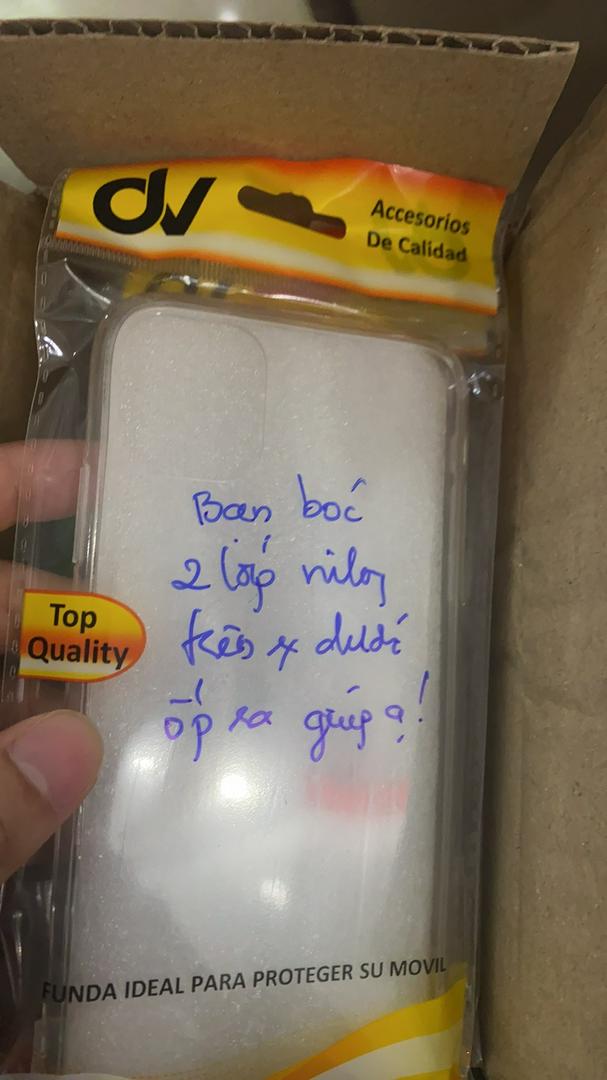 dv
Accesorios
De Calidad
Bạn bóc
2 lớp nilon
trên x dưới
Top
Quality
ốp ra giúp ạ!
FUNDA IDEAL PARA PROTEGER SU MOVIL